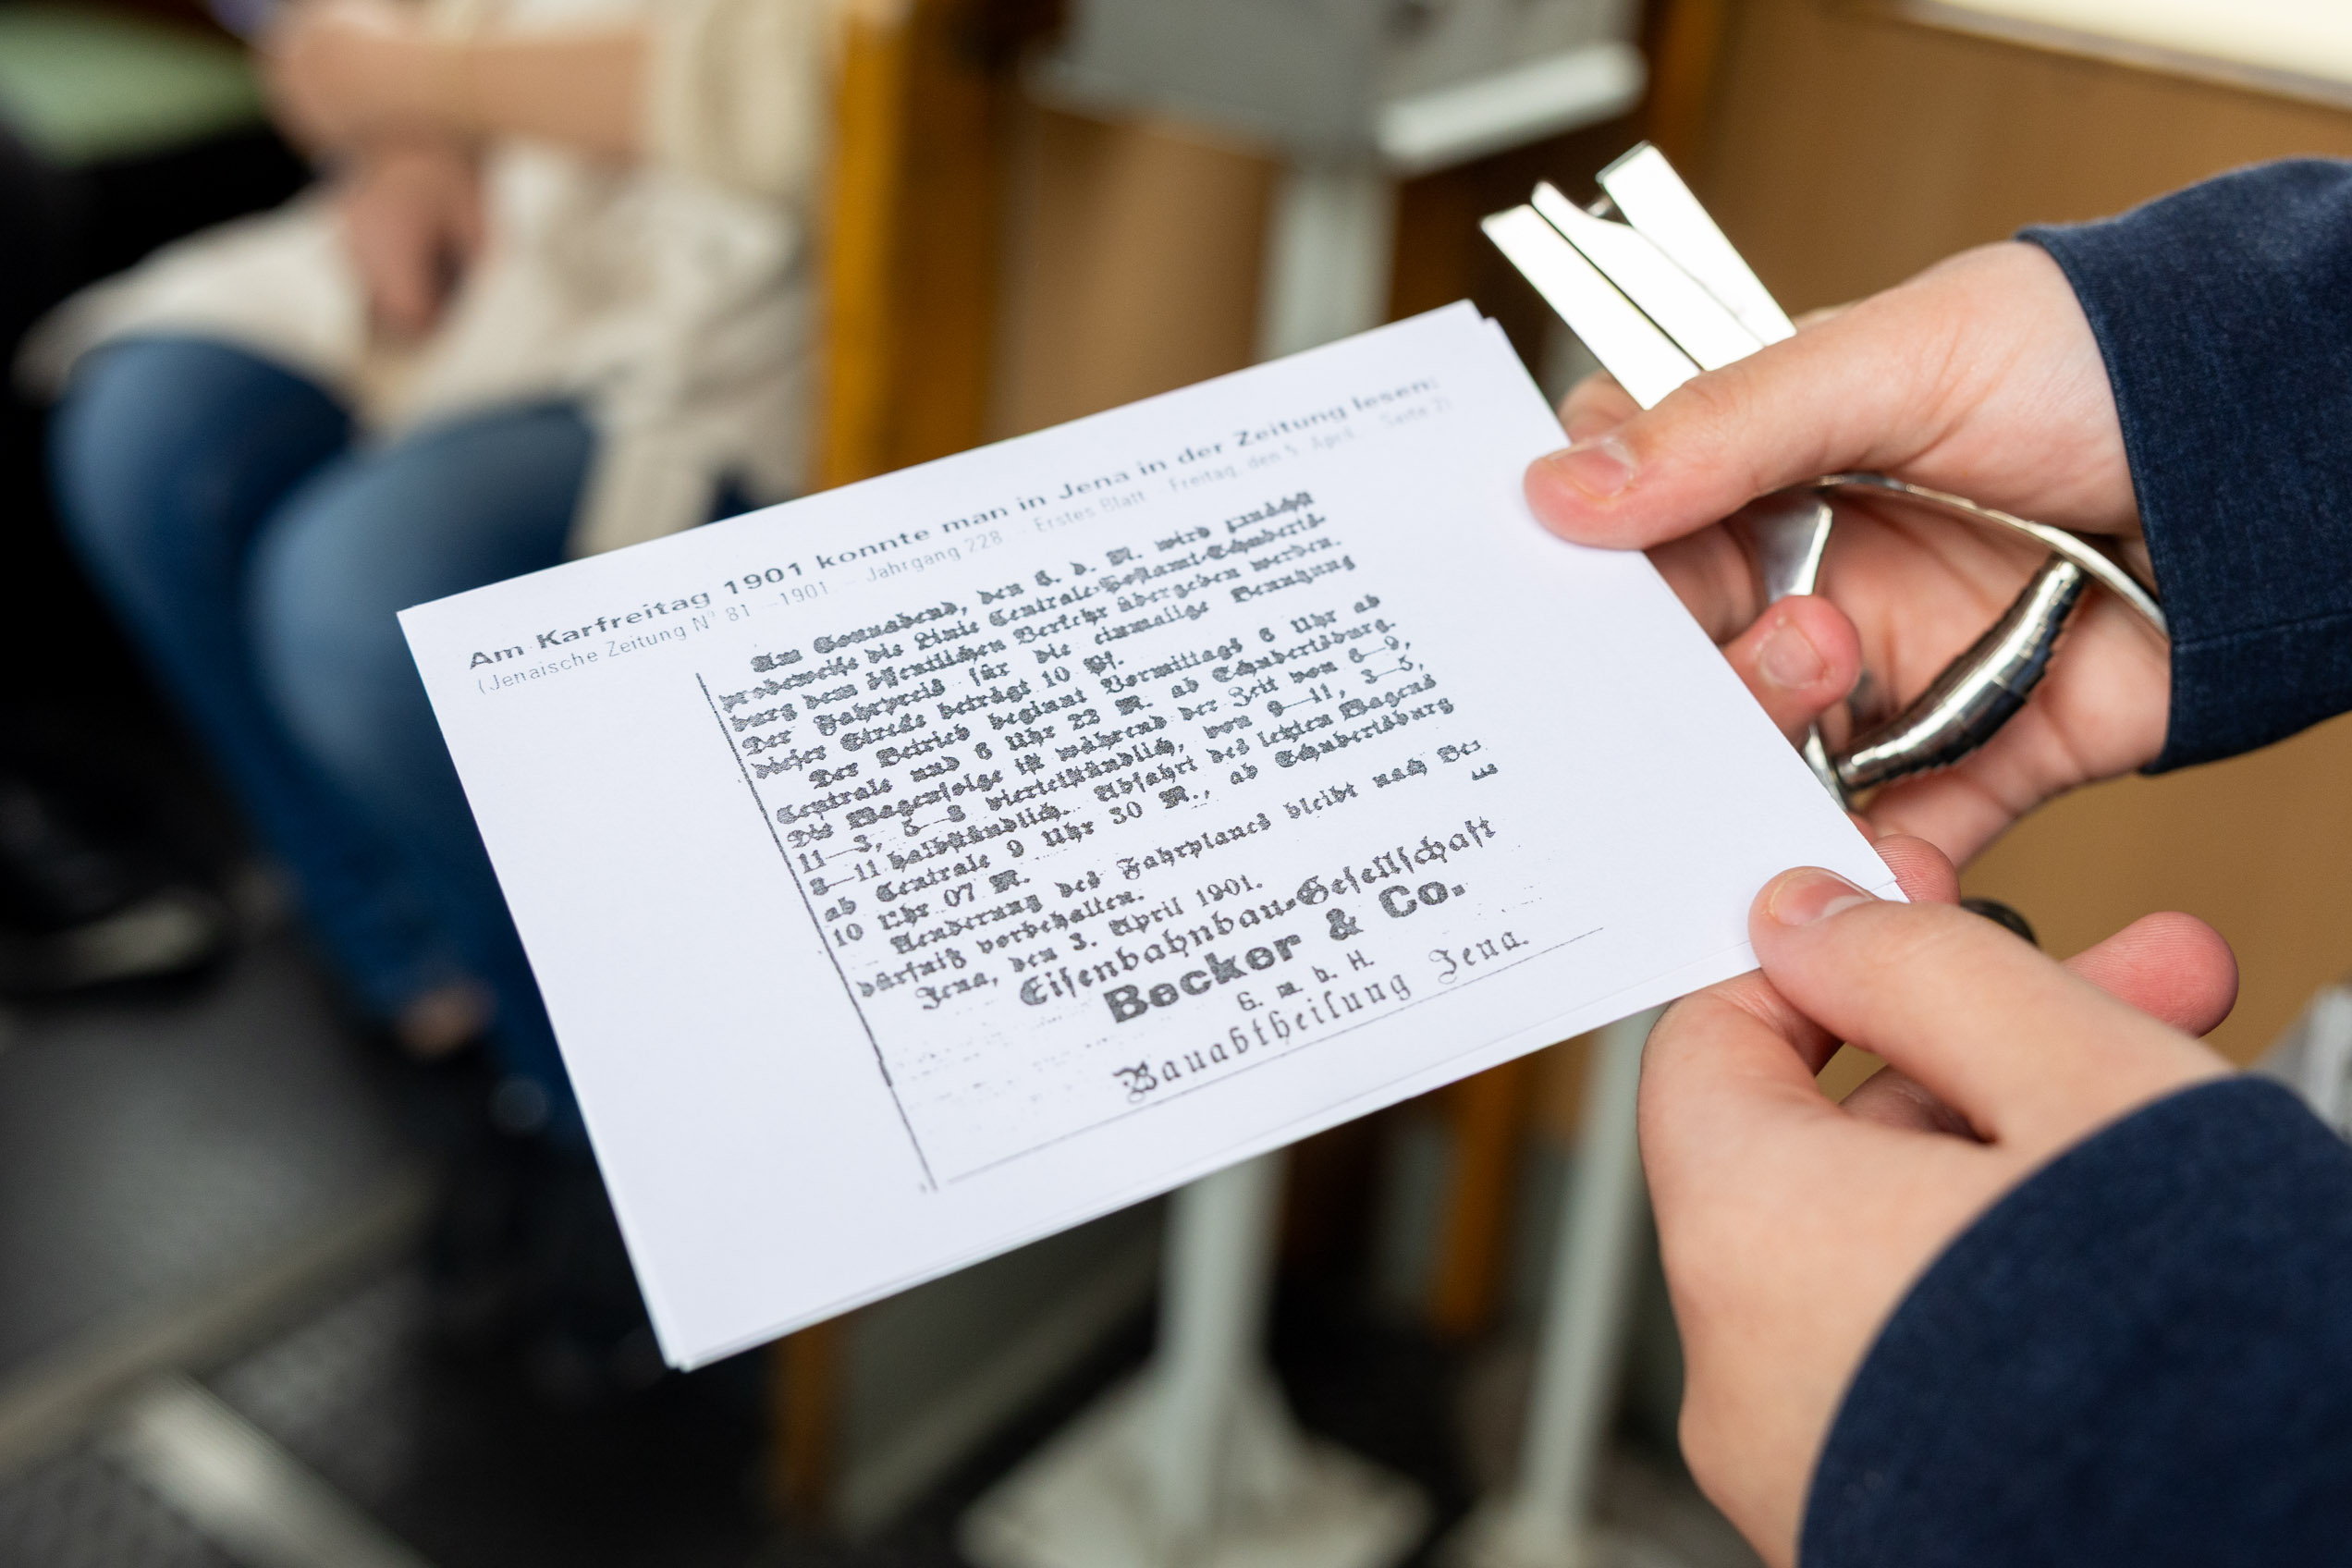 Am Karfreitag 1901 konnte man in Jena in der Zeitung lesen:
(Jenaische Zeitung Nº 81 – 1901 – Jahrgang 228 · Erstes Blatt · Freitag, den 5. April · Seite 2)
Am Sonnabend, den 6. d. M. wird zunächst
probeweise die Linie Centrale-Postamt-Schuberts-
burg dem öffentlichen Verkehr übergeben werden.
Der Fahrpreis für die einmalige Benutzung
dieser Strecke beträgt 10 Pf.
Der Betrieb beginnt Vormittags 6 Uhr ab
Centrale und 6 Uhr 22 M. ab Schubertsburg.
Die Wagenfolge ist während der Zeit von 6—9,
11—3, 5—8 viertelstündlich, von 9—11, 3—5,
8—11 halbstündlich. Abfahrt des letzten Wagens
ab Centrale 9 Uhr 30 M., ab Schubertsburg
10 Uhr 07 M.
Aenderung des Fahrplanes bleibt nach Be-
dürfniß vorbehalten.
Jena, den 3. April 1901.
Eisenbahnbau-Gesellschaft
Becker & Co.
G. m. b. H.
Bauabtheilung Jena.